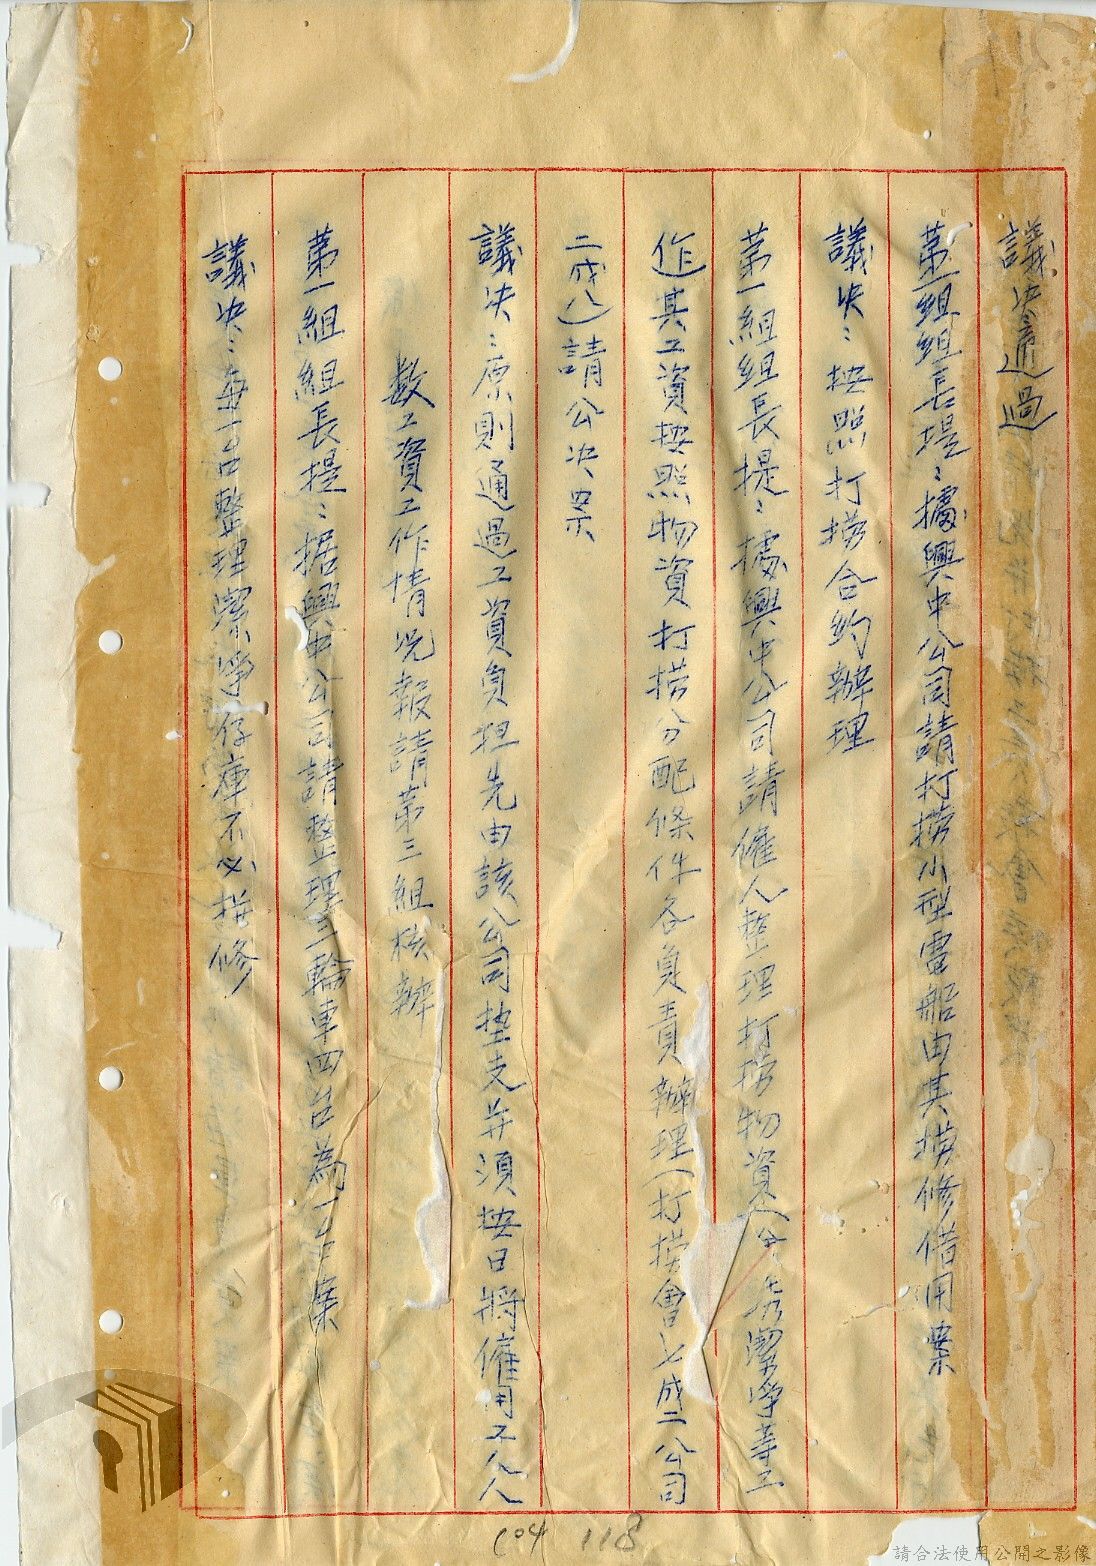 議決通過
第一組組長提：據興中公司請打撈小型電船由其撈修借用案
議決：按照打撈合約辦理
第一組組長提：據興中公司請僱人整理打撈物資潔淨等工
作其工資按照物資打撈分配條件各負責辦理（打撈會七成二公司
二成八）請公決案
議決：原則通過工資負担先由該公司墊支并須按日將僱用工人人
數工資工作情况報請第三組核辦
第一組組長提：据興中公司請整理三輪車四台為一台案
議決：每一台整理潔淨存庫不必撈修
604 118
請合法使用公開之影像